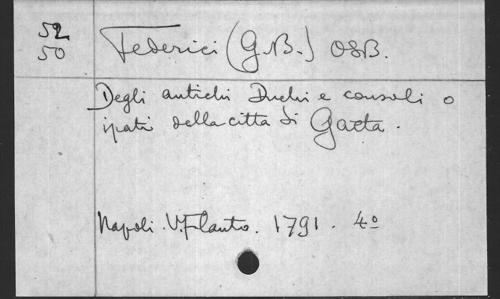 52
50
Federici (G.B.) OSB.
Degli antichi Duchi e consoli o
ipati della città di Gaeta.
Napoli. V. Flauto. 1791. 4º